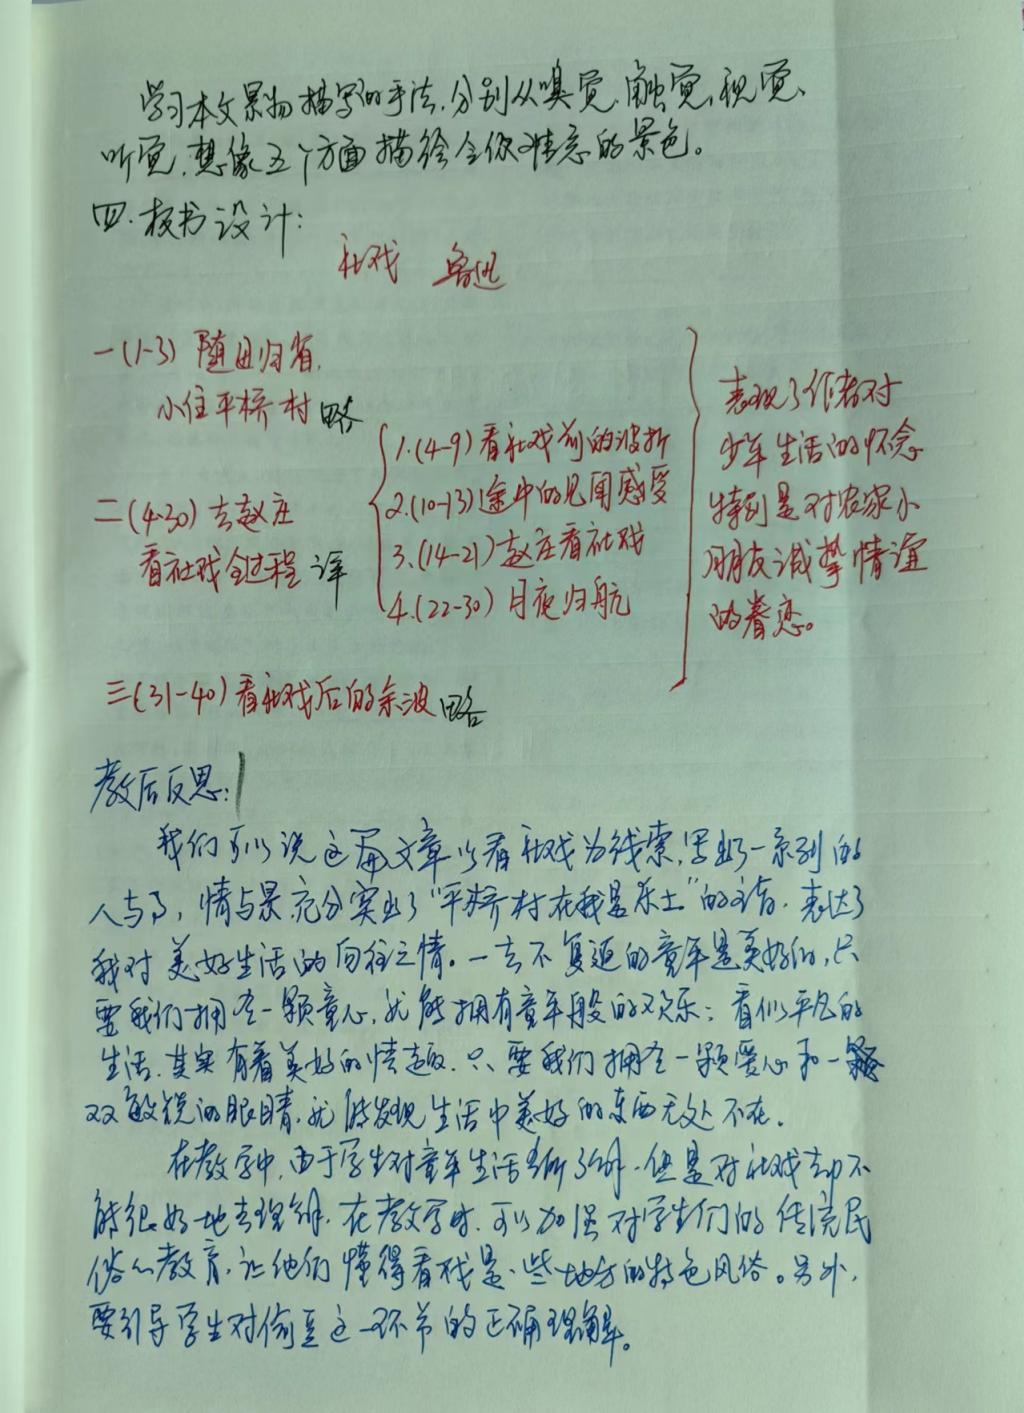 学习本文景物描写的手法,分别从嗅觉、触觉、视觉、
听觉、想像五个方面描绘令你难忘的景色。
四.板书设计:
社戏 鲁迅
一(1-3)随母归省,
小住平桥村 略
二(4-30)去赵庄
看社戏全过程 详
1.(4-9)看社戏前的波折
2.(10-13)途中的见闻感受
3.(14-21)赵庄看社戏
4.(22-30)月夜归航
三(31-40)看社戏后的余波 略
表现了作者对
少年生活的怀念
特别是对农家小
朋友诚挚情谊
的眷恋。
教后反思:
我们可以说这篇文章以看社戏为线索,写出了一系列的
人与事,情与景,充分突出了“平桥村在我是乐土”的主旨,表达了
我对美好生活的向往之情。一去不复返的童年是美好的,只
要我们拥有一颗童心,就能拥有童年般的欢乐;看似平凡的
生活,其实有着美好的情趣,只要我们拥有一颗爱心和一
双敏锐的眼睛,就能发现生活中美好的东西无处不在.
在教学中,由于学生对童年生活有所了解,但是对社戏却不
能很好地去理解,在教学时,可以加强对学生们的传统民
俗的教育,让他们懂得看戏是一些地方的特色风俗。另外,
要引导学生对偷豆这一环节的正确理解。